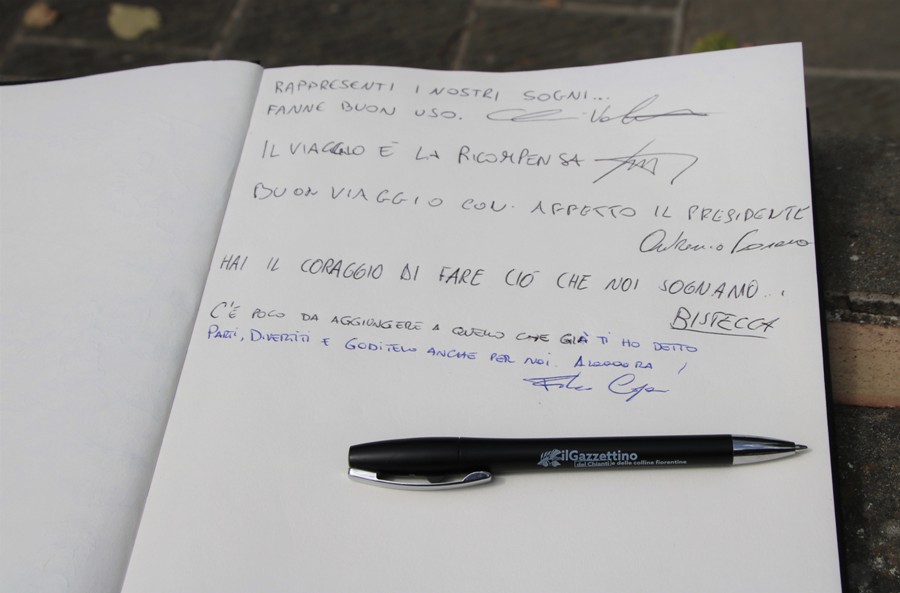 RAPPRESENTI I NOSTRI SOGNI...
FANNE BUON USO.
IL VIAGGIO È LA RICOMPENSA
BUON VIAGGIO CON AFFETTO IL PRESIDENTE
HAI IL CORAGGIO DI FARE CIÒ CHE NOI SOGNAMO...
BISTECCA
C'È POCO DA AGGIUNGERE A QUELLO CHE GIÀ TI HO DETTO
PARTI, DIVERTITI E GODITELO ANCHE PER NOI. ALOOOORA !
ilGazzettino
del Chianti e delle colline fiorentine